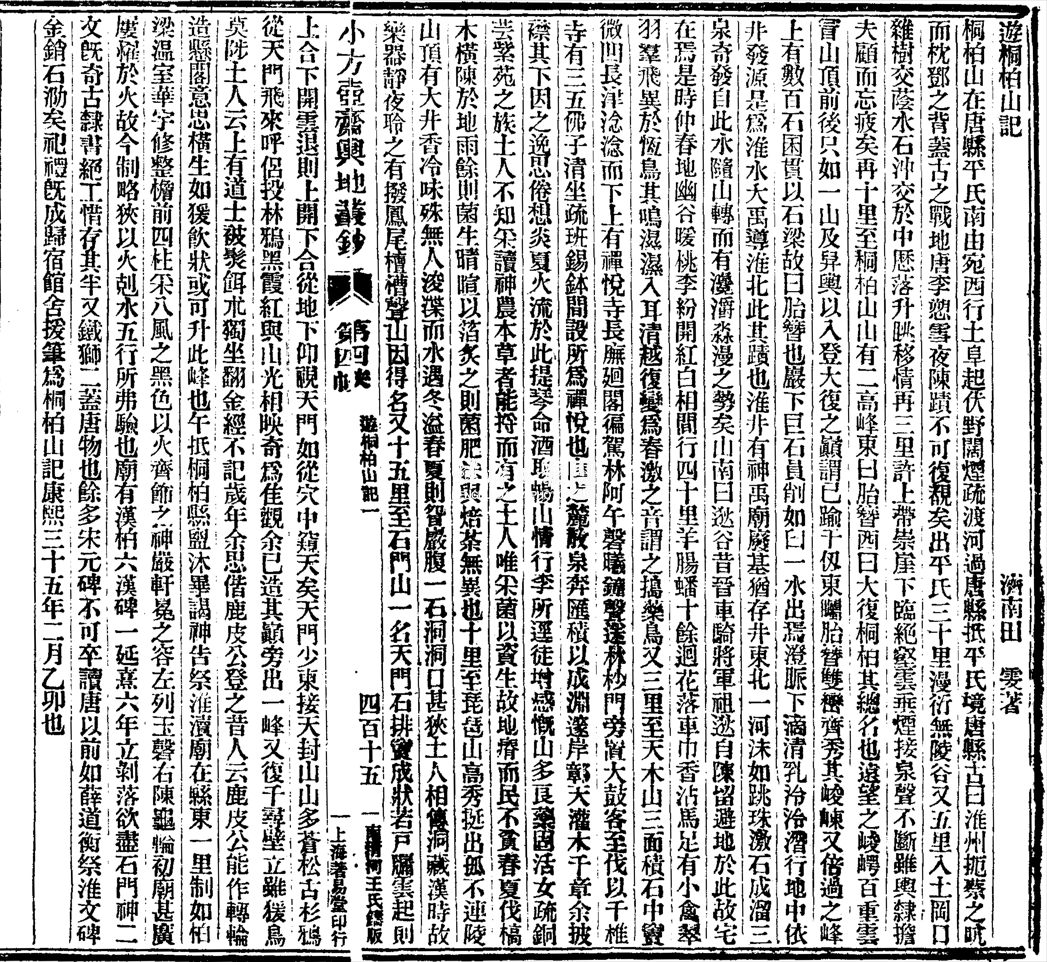 遊桐柏山記
濟南田 雯著
桐柏山在唐縣平氏南由宛西行土阜起伏野闊煙疏渡河過唐縣抵平氏境唐縣古曰淮州扼蔡之吭
而枕鄧之背蓋古之戰地唐李愬雪夜陳蹟不可復覩矣出平氏三十里漫衍無陵谷又五里入土岡口
雜樹交蔭水石沖交於中歷落升眺移情再三里許上帶崇崖下臨絕壑雲垂煙接泉聲不斷雖輿隸擔
夫顧而忘疲矣再十里至桐柏山山有二高峰東曰胎簪西曰大復桐柏其總名也遠望之崚崿百重雲
冒山頂前後只如一山及舁輿以入登大復之巔謂已踰千仞東矚胎簪雙巒齊秀其峻崠又偕過之峰
上有數百石困貫以石梁故曰胎簪也巖下巨石員削如臼一水出焉澄脈下滴清乳泠泠潛行地中依
井發源是爲淮水大禹導淮北此其蹟也淮井有神禹廟廢基猶存井東北一河沫如跳珠激石成溜三
泉奇發自此水隨山轉而有瀺灂淼漫之勢矣山南曰逖谷昔晉車騎將軍祖逖自陳留避地於此故宅
在焉是時仲春地幽谷暖桃李紛開紅白相間行四十里羊腸蟠十餘迴花落車巾香沾馬足有小禽翠
羽羣飛異於恆鳥其鳴濕濕入耳清越復變爲春激之音謂之搗藥鳥又三里至天木山三面積石中竇
微凹長津淰淰而下上有禪悅寺長廡迴閣徧駕林阿午磬曦鐘聲遂林杪門旁置大鼓客至伐以千椎
寺有三五佛子清坐疏班錫鉢間設所爲禪悅也 之麓散泉奔匯積以成淵邃岸鄣天灌木千章余披
襟其下因之逸思倦想炎夏火流於此提琴命酒聊 山情行李所逕徒增感慨山多良藥固活女疏銅
芸紫苑之族土人不知采讀神農本草者能捋而有之土人唯采菌以資生故地瘠而民不貧春夏伐槁
木橫陳於地雨餘則菌生晴暄以箔炙之則菌肥 與焙茶無異也十里至琵琶山高秀挺出孤不連陵
山頂有大井香冷味殊無人浚渫而水遇冬溢春夏則眢巖腹一石洞洞口甚狹土人相傳洞藏漢時故
樂器靜夜聆之有撥鳳尾檀槽聲山因得名又十五里至石門山一名天門石排竇成狀若戶牖雲起則
小方壺齋輿地叢鈔
第四帙
遊桐柏山記一
四百十五
南清河王氏鑄版
上海著易堂印行
上合下開雲退則上開下合從地下仰視天門如從穴中窺天矣天門少東接天封山山多蒼松古杉鴉
從天門飛來呼侶投林鴉黑霞紅與山光相映奇爲佳觀余已造其巔旁出一峰又復千尋壁立雖猨鳥
莫陟土人云上有道士被髮餌朮獨坐翻金經不記歲年余思偕鹿皮公登之昔人云鹿皮公能作轉輪
造懸閣意思橫生如猨飲狀或可升此峰也午抵桐柏縣盥沐畢謁神告祭淮瀆廟在縣東一里制如柏
梁溫室華宇修整檐前四柱采八風之黑色以火齊飾之神嚴軒冕之容左列玉磬右陳龜輪初廟甚廣
屢燬於火故今制略狹以火剋水五行所弗驗也廟有漢柏六漢碑一延熹六年立剝落欲盡石門神二
文旣奇古隸書絕工惜存其半又鐵獅二蓋唐物也餘多宋元碑不可卒讀唐以前如薛道衡祭淮文碑
金銷石泐矣祀禮旣成歸宿館舍援筆爲桐柏山記康熙三十五年二月乙卯也